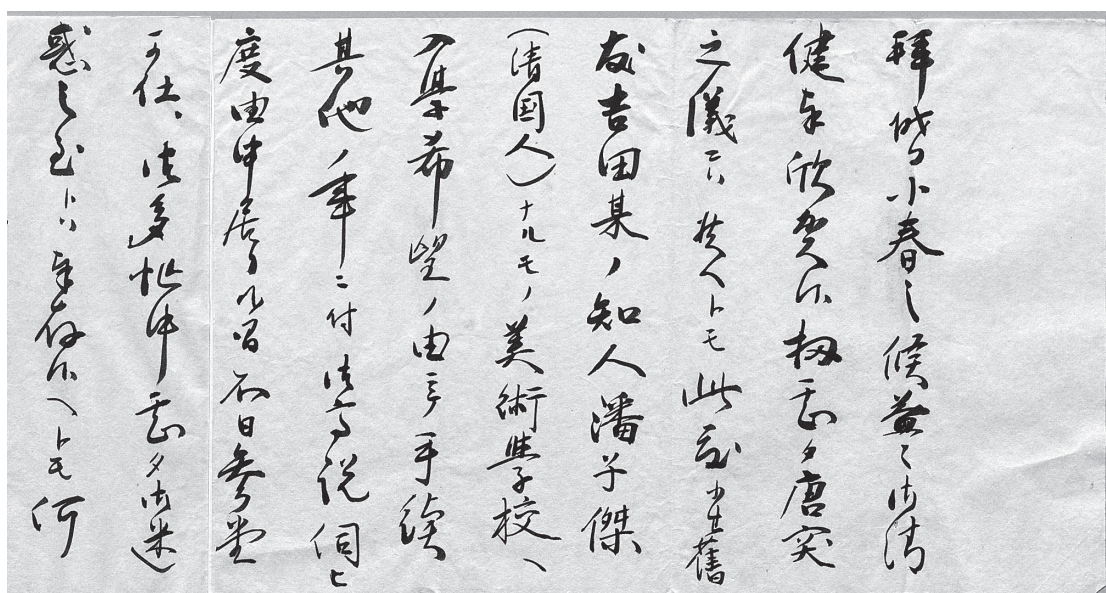 拝啓小春之候益々御清
健奉欣賀候扨甚タ唐突
之儀ニハ候ヘトモ此度小生舊
友吉田某ノ知人潘子傑
(清国人)ナルモノ美術學校ヘ
入學希望ノ由ニテ手續
其他ノ事ニ付御高説伺ヒ
度由申居リ候間不日参堂
可仕、御多忙中甚タ御迷
惑之至トハ奉存候ヘトモ何